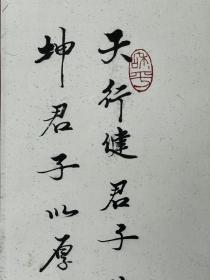 天行健君子
坤君子以厚